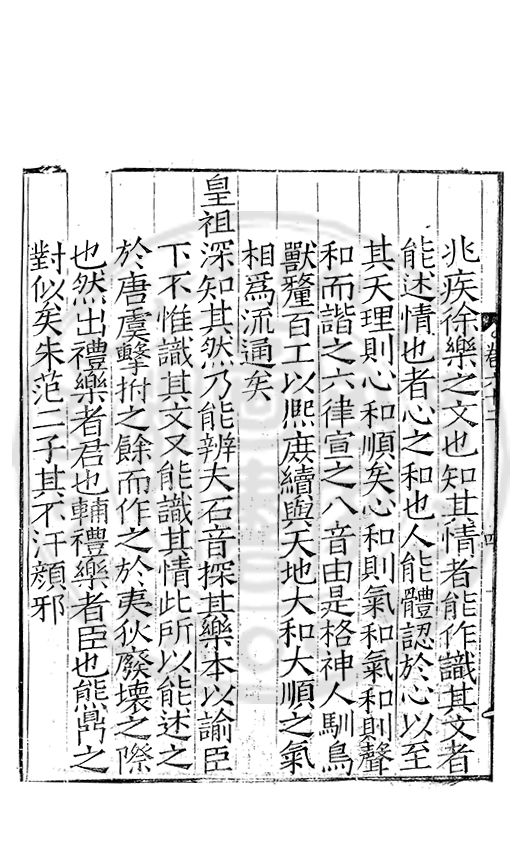 兆疾徐樂之文也知其情者能作識其文者
能述情也者心之和也人能體認於心以至
其天理則心和順矣心和則氣和氣和則聲
和而諧之六律宣之八音由是格神人馴鳥
獸釐百工以熈庶續與天地大和大順之氣
相爲流通矣
皇祖深知其然乃能辨夫石音探其樂本以諭臣
下不惟識其文又能識其情此所以能述之
於唐虞擊拊之餘而作之於夷狄廢壞之際
也然出禮樂者君也輔禮樂者臣也熊鼎之
對似矣朱范二子其不汗顔邪